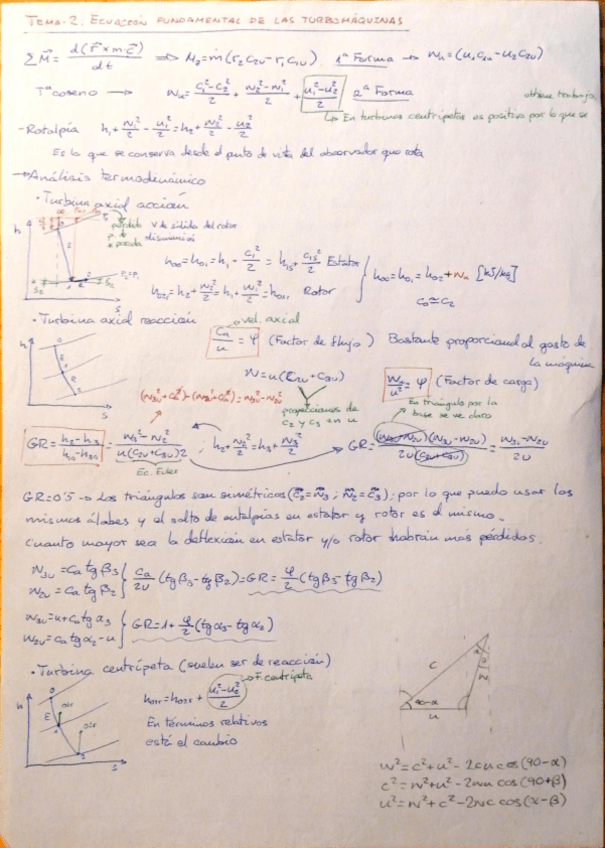 TEMA-2. ECUACIÓN FUNDAMENTAL DE LAS TURBOMÁQUINAS
ΣM⃗ = d(r⃗×m·c⃗)/dt ⟹ M₂ = ṁ(r₂c₂u - r₁c₁u) 1ª Forma → Wu = (u₁c₁u - u₂c₂u)
Tª coseno → Wu = (c₁²-c₂²)/2 + (w₂²-w₁²)/2 + (u₁²-u₂²)/2 2ª Forma
↳ En turbinas centrípetas es positivo por lo que se obtiene trabajo
- Rotalpía h₁ + w₁²/2 - u₁²/2 = h₂ + w₂²/2 - u₂²/2
Es lo que se conserva desde el punto de vista del observador que rota
→ Análisis termodinámico
· Turbina axial acción
pérdida V de salida del rotor
disminuirá
h₀₀ = h₀₁ = h₁ - c₁²/2 = h₁s + c₁s²/2 Estator
h₀₂r = h₂ + w₂²/2 = h₁ + w₁²/2 = h₀₁r Rotor
h₀₀ = h₀₁ = h₀₂ + Wu [kJ/kg]
c₀ ≃ c₂
· Turbina axial reacción
→ vel. axial
Ca/u = φ (Factor de flujo) Bastante proporcional al gasto de la máquina
W = u(C₂u + C₃u)
proyecciones de c₂ y c₃ en u
W/u² = ψ (Factor de carga)
En triángulo por la base se ve claro
(w₃u² + ca²) - (w₂u² + ca²) = w₃u² - w₂u²
GR = (h₂-h₃)/(h₀₁-h₀₃) = (w₃²-w₂²)/(u(c₂u+c₃u)2) ; h₂ + w₂²/2 = h₃ + w₃²/2
Ec. Euler
GR = (w₃u+w₂u)(w₃u-w₂u)/(2u(c₂u+c₃u)) = (w₃u-w₂u)/2u
GR=0'5 → Los triángulos son simétricos (c⃗₂=w⃗₃ ; w⃗₂=c⃗₃) ; por lo que puedo usar los
mismos álabes y el salto de entalpías en estator y rotor es el mismo.
Cuanto mayor sea la deflexión en estator y/o rotor habrán más pérdidas.
w₃u = ca tg β₃
w₂u = ca tg β₂
ca/2u (tgβ₃ - tgβ₂) = GR = φ/2 (tgβ₃ - tgβ₂)
w₃u = u + ca tg α₃
w₂u = ca tg α₂ - u
GR = 1 + φ/2 (tgα₃ - tgα₂)
· Turbina centrípeta (suelen ser de reacción)
→ F. centrípeta
h₀₁r = h₀₂r + (u₁²-u₂²)/2
En términos relativos
está el cambio
c
90-α
u
w² = c² + u² - 2cu cos(90-α)
c² = w² + u² - 2wu cos(90+β)
u² = w² + c² - 2wc cos(α-β)